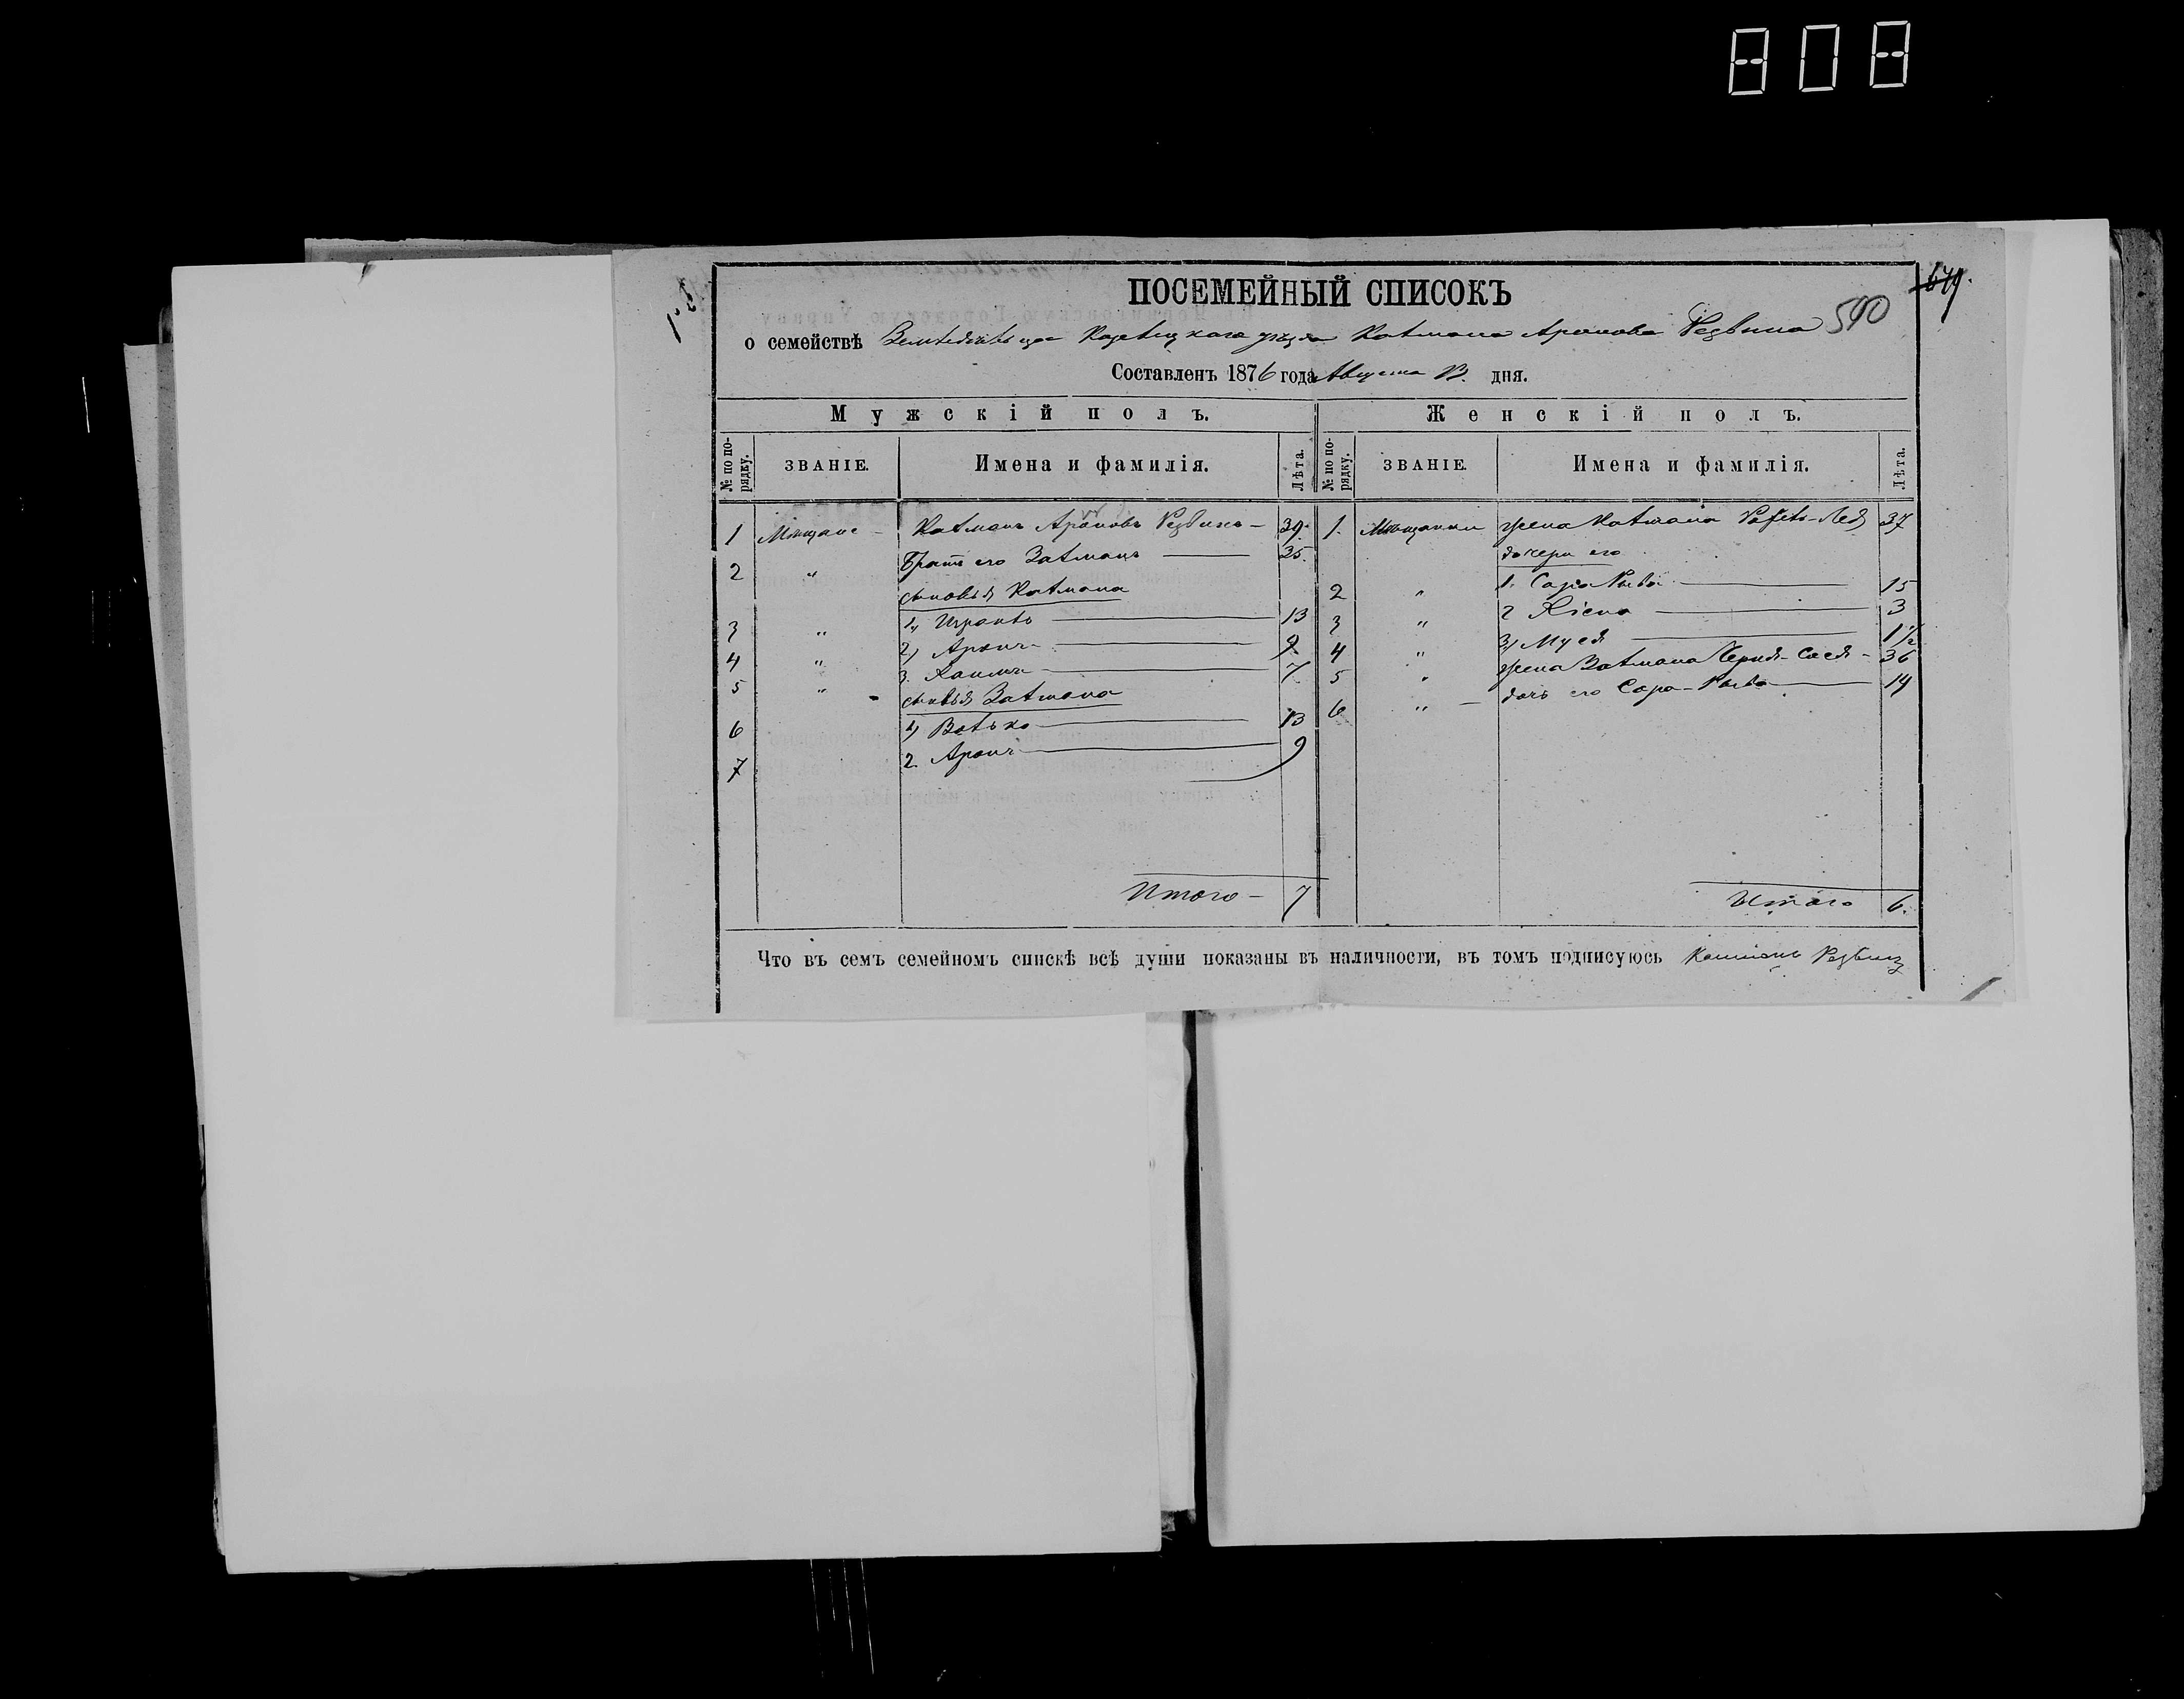 808
679.
ПОСЕМЕЙНЫЙ СПИСОКЪ
590
о семействѣ Земледѣльца Козелецкаго уѣзда Калмана Аронова Резвина
Составленъ 1876 года Августа 13. дня.
Мужскій полъ. Женскій полъ.
№ по порядку. ЗВАНІЕ. Имена и фамилія. Лѣта. № по порядку. ЗВАНІЕ. Имена и фамилія. Лѣта.
1 Мѣщане - Калманъ Ароновъ Резвинъ - 39. 1. Мѣщанки жена Калмана 37
2 " Братъ его Залманъ 35. дочери его
сыновья Калмана 2 " 1. Сора Рыва 15
3 " 1, 13 3 " 2 3
4 " 2) Аронъ 9. 4 " 3) Муся 1½
5 " 3. Хаимъ 7 5 " жена Залмана Черня-Сося - 36
сыновья Залмана 6 " дочь его Сора-Рыва 14
6 1) Велько 13
7 2. Аронъ 9
Итого - 7 Итого 6.
Что въ семъ семейномъ спискѣ всѣ души показаны въ наличности, въ томъ подписуюсь Калманъ Резвин